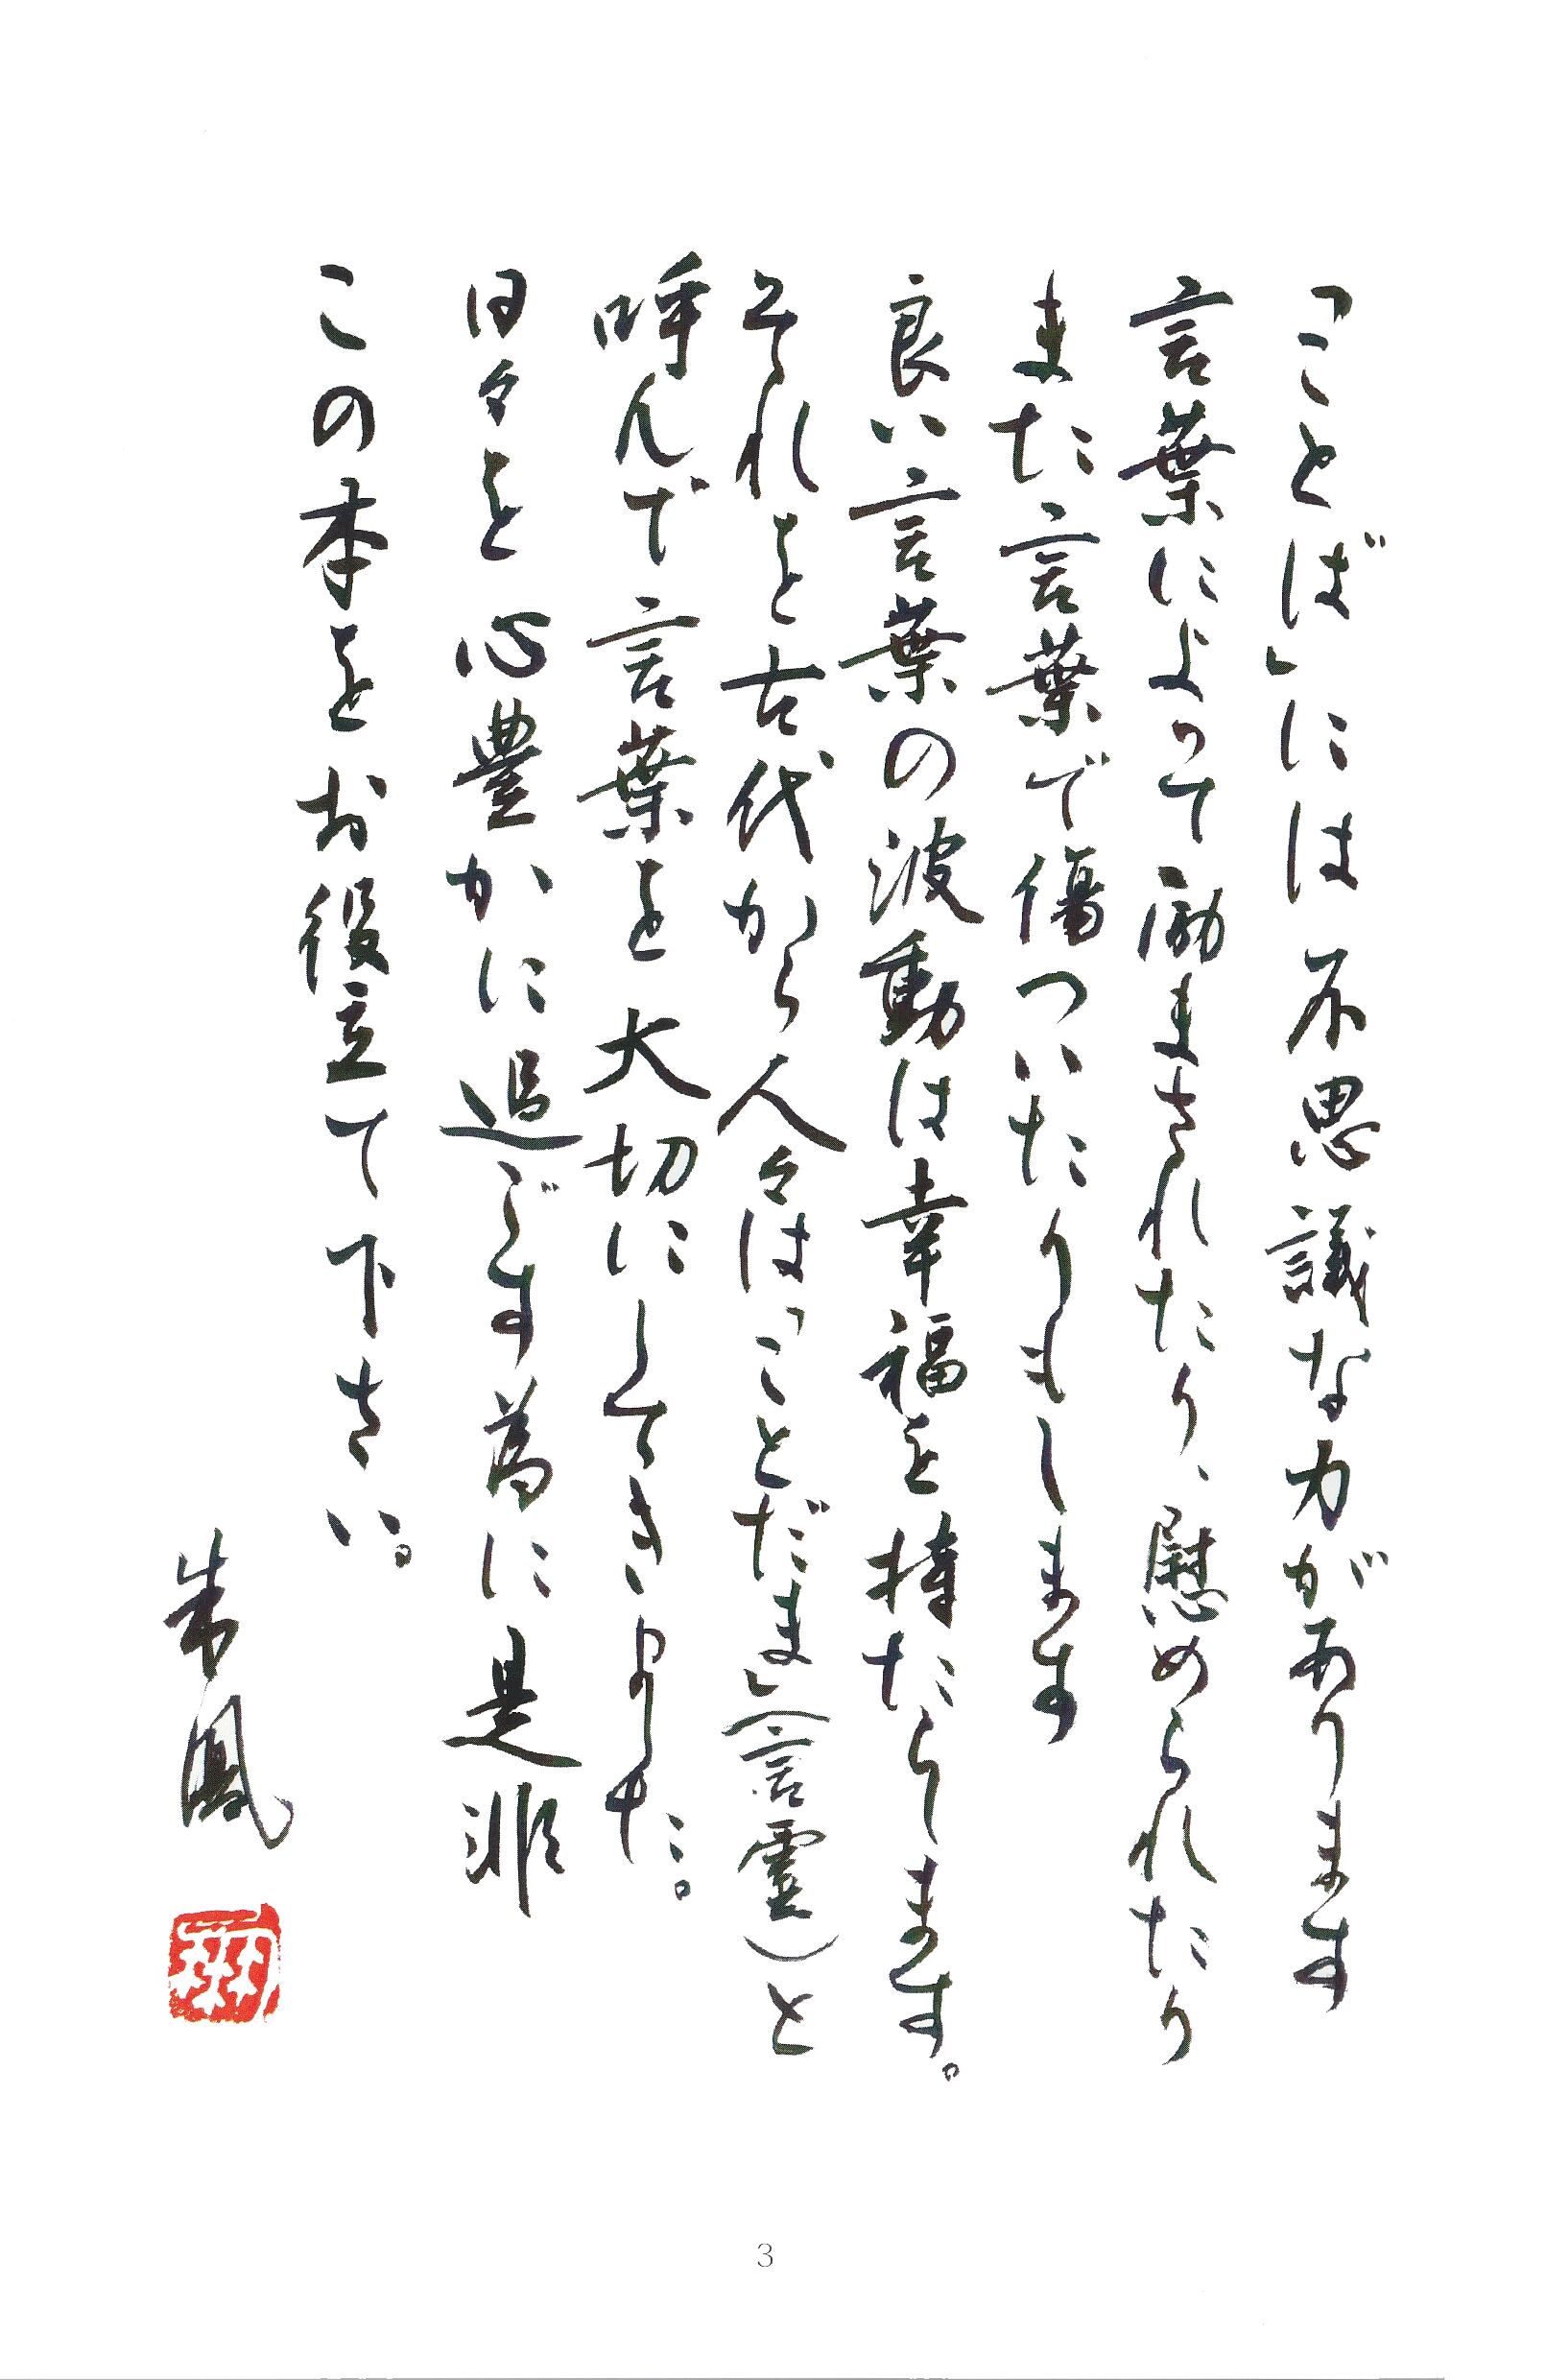 「ことば」には不思議な力があります
言葉によって励まされたり、慰められたり
また言葉で傷ついたりもします
良い言葉の波動は幸福を持たらします。
それを古代から人々は「ことだま」(言霊)と
呼んで言葉を大切にしてきました。
日々を心豊かに過ごす為に是非
この本をお役立て下さい。
朱鳳
3